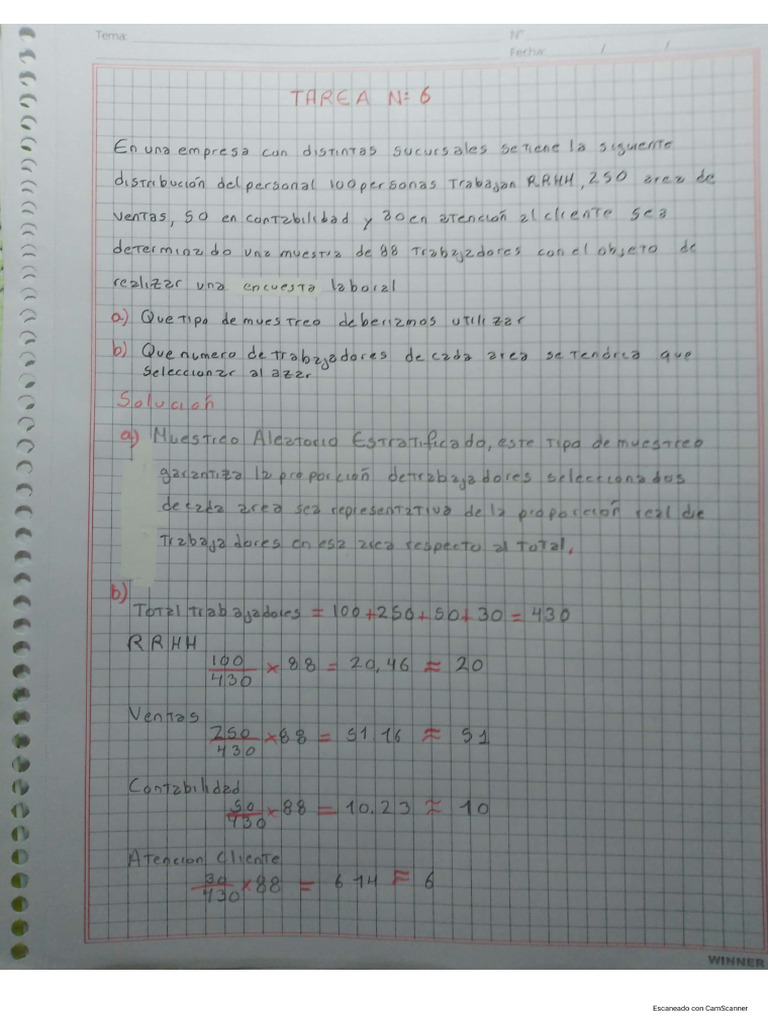 Tema:
Nº
Fecha: / /
TAREA N: 6
En una empresa con distintas sucursales se tiene la siguiente
distribución del personal 100 personas trabajan RRHH, 250 area de
ventas, 50 en contabilidad y 30 en atención al cliente sea
determinado una muestra de 88 trabajadores con el objeto de
realizar una encuesta laboral
a) Que tipo de muestreo deberiamos utilizar
b) Que numero de trabajadores de cada area se tendria que
seleccionar al azar
Solución
a) Muestreo Aleatorio Estratificado, este tipo de muestreo
garantiza la proporción de trabajadores seleccionados
de cada area sea representativa de la proporción real de
trabajadores en esa area respecto al total.
b)
Total trabajadores = 100+250+50+30 = 430
RRHH
100/430 × 88 = 20,46 ≈ 20
Ventas
250/430 × 88 = 51.16 ≈ 51
Contabilidad
50/430 × 88 = 10.23 ≈ 10
Atencion Cliente
30/430 × 88 = 6 14 ≈ 6
WINNER
Escaneado con CamScanner